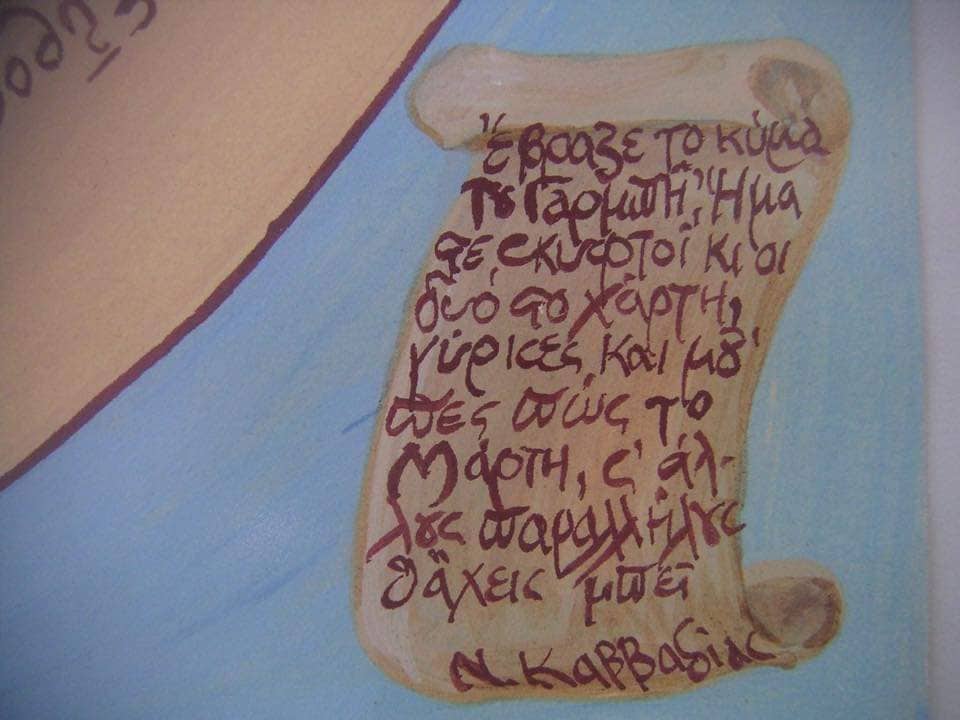 Ἔβραζε το κύμα
τȣ Γαρμπῆ, Ἤμα
ϛε, σκυφτοί κι οι
δυό ϛο χάρτη,
γύρισες και μȣ '
πες πώς το
Μάρτη, σ' άλ-
λȣς παραλλήλȣς
θἄχεις μπεῖ
Ν. Καββαδίας